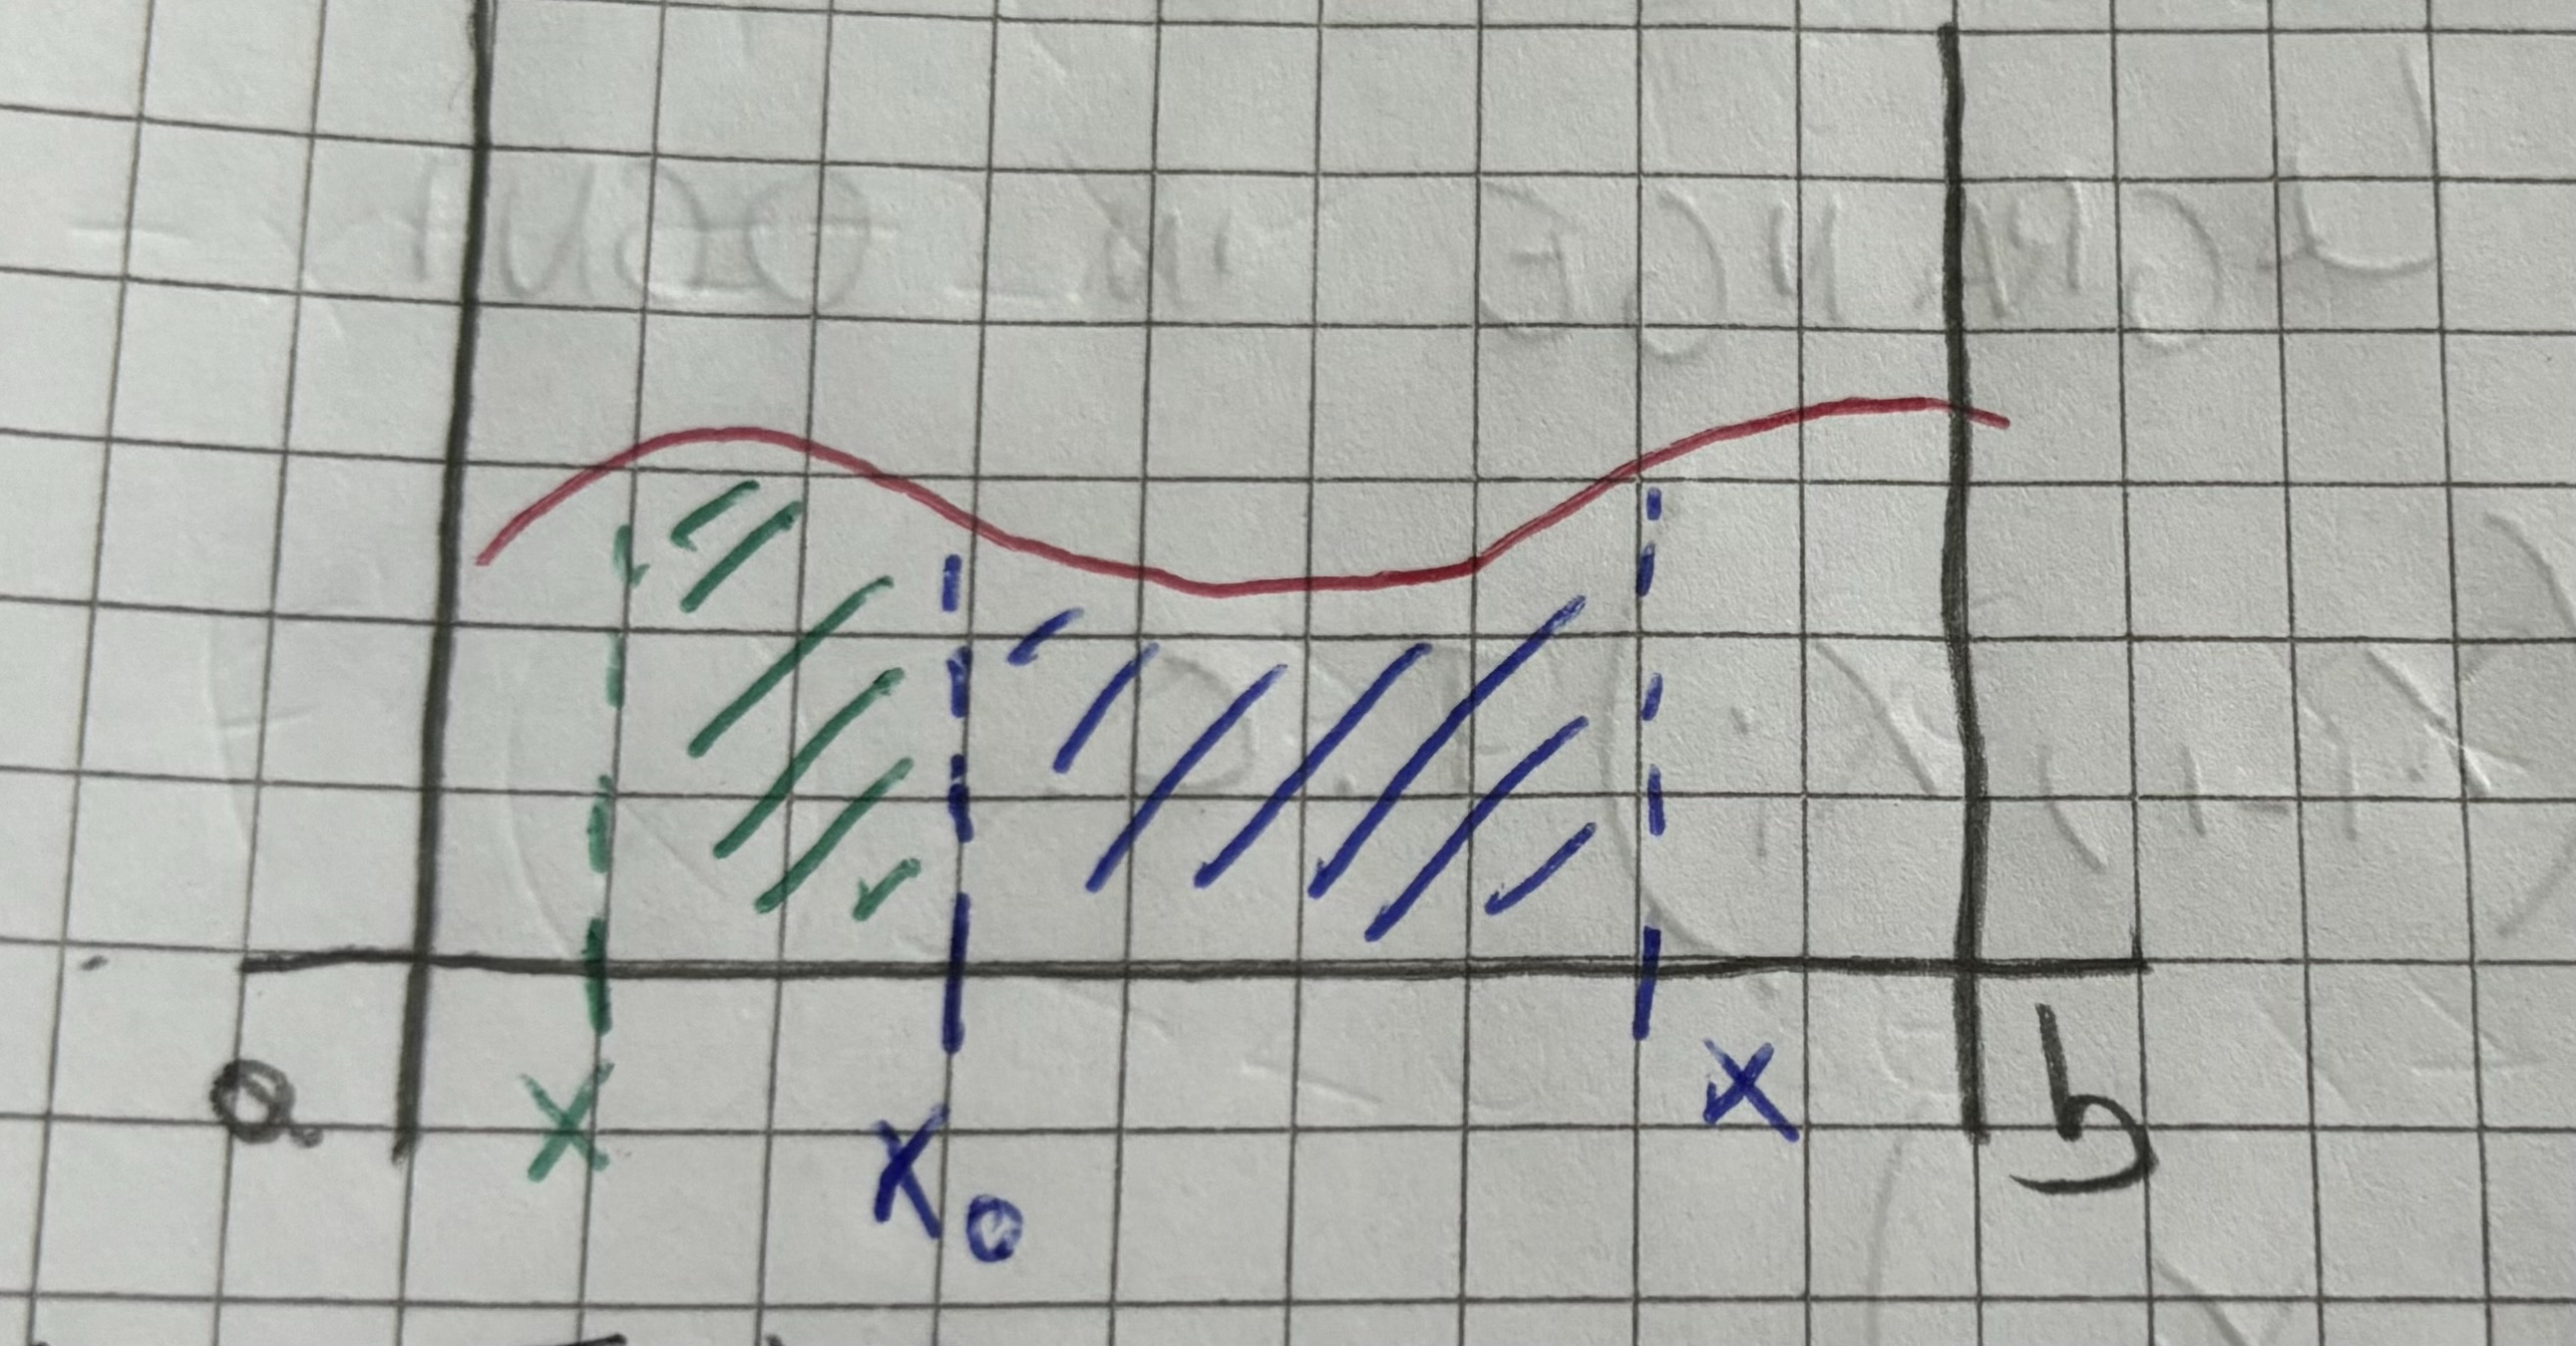 a x x₀ x b